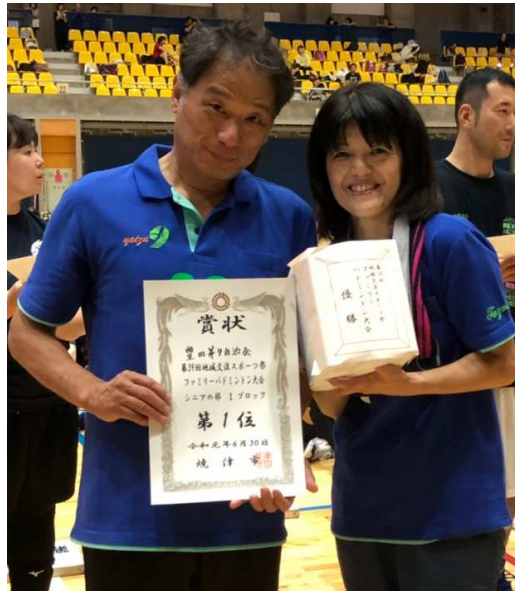 yaizu
9
賞状
豊田第9自治会
第39回地域交流スポーツ祭
ファミリーバドミントン大会
シニアの部 1ブロック
第1位
令和元年6月30日
焼津市
ファミリー
バドミントン大会
優勝